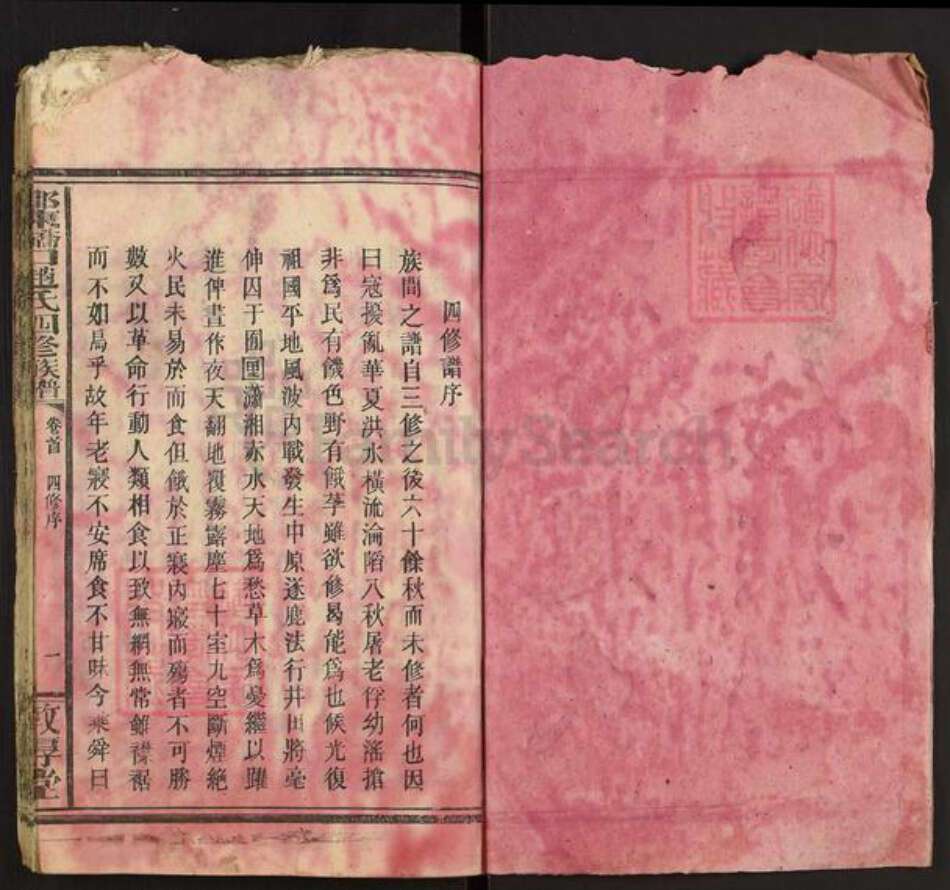 四修譜序
族間之譜自三修之後六十餘秋而未修者何也因
日寇擾亂華夏洪水橫流淪陷八秋屠老俘幼滛搶
非爲民有饑色野有餓莩雖欲修曷能爲也候光復
祖國平地風波內戰發生中原逐鹿法行井田將毫
伸囚于囿里瀟湘赤水天地爲愁草木爲憂繼以躍
進伸晝作夜天翻地覆霧露塵七十室九空斷煙絕
火民未易於而食但餓於正寢內寢而殤者不可勝
數又以革命行動人類相食以致無綱無常雖襟裾
而不如馬乎故年老寢不安席食不甘味今乘舜日
趙氏四修族譜
卷首
四修序
一
FamilySearch